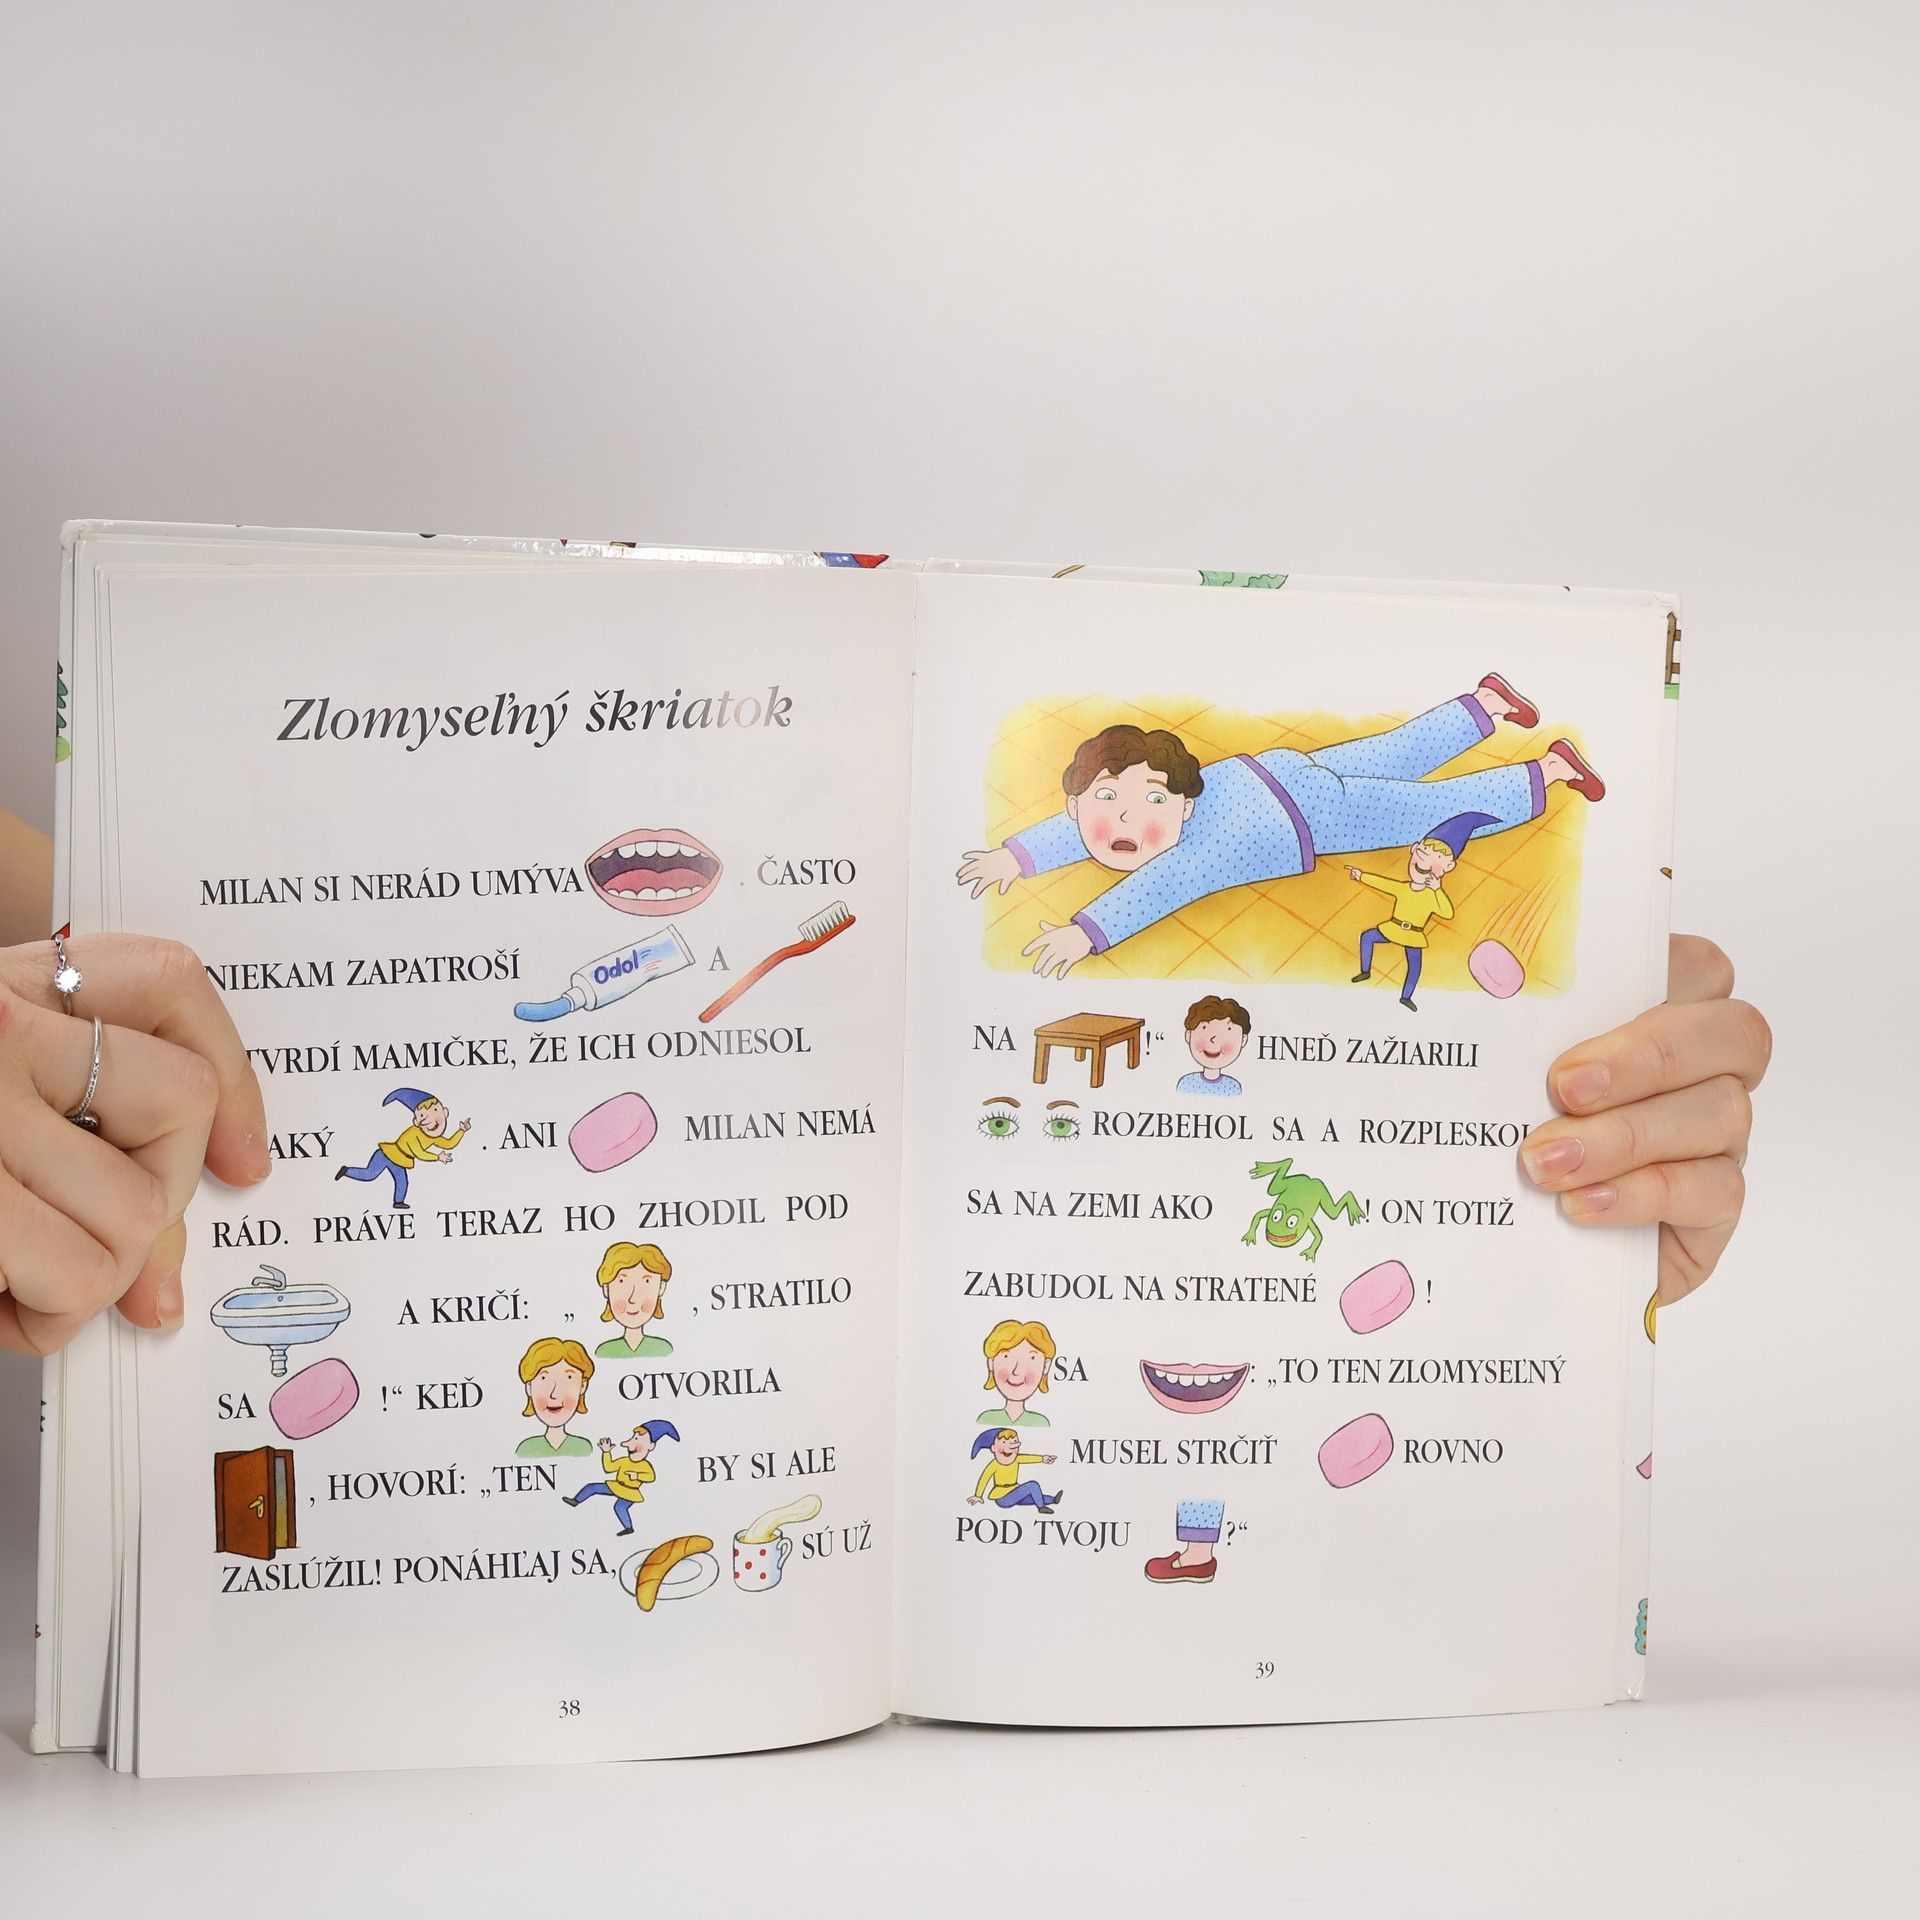 Zlomyseľný škriatok
MILAN SI NERÁD UMÝVA . ČASTO
NIEKAM ZAPATROŠÍ Odol A
TVRDÍ MAMIČKE, ŽE ICH ODNIESOL
. ANI MILAN NEMÁ
RÁD. PRÁVE TERAZ HO ZHODIL POD
A KRIČÍ: „ , STRATILO
SA !“ KEĎ OTVORILA
, HOVORÍ: „TEN BY SI ALE
ZASLÚŽIL! PONÁHĽAJ SA, SÚ UŽ
38
NA !“ HNEĎ ZAŽIARILI
ROZBEHOL SA A ROZPLESKOL
SA NA ZEMI AKO ! ON TOTIŽ
ZABUDOL NA STRATENÉ !
SA : „TO TEN ZLOMYSEĽNÝ
MUSEL STRČIŤ ROVNO
POD TVOJU ?“
39